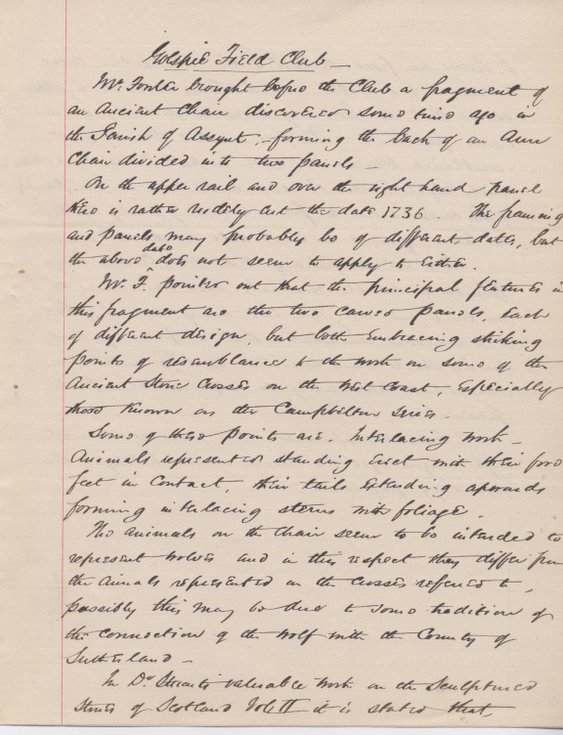 Golspie Field Club —
Mr. Fowler brought before the Club a fragment of
an Ancient Chair discovered some time ago in
the Parish of Assynt, forming the back of an Arm
Chair divided into two panels —
On the upper rail and over the right hand panel
there is rather rudely cut the date 1736. The framing
and panels may probably be of different dates, but
the above date does not seem to apply to either.
Mr. F. pointed out that the principal features in
this fragment are the two carved panels, each
of different design, but both embracing striking
points of resemblance to the work on some of the
Ancient Stone Crosses on the West Coast, especially
those known as the Campbelton Series.
Some of these points are. Interlacing work —
Animals represented standing erect with their fore
feet in contact, their tails extending upwards
forming interlacing stems with foliage.
The animals on the chair seem to be intended to
represent wolves and in this respect they differ from
the animals represented on the Crosses referred to,
possibly this may be due to some tradition of
the connection of the Wolf with the County of
Sutherland —
In Dr Stuart's valuable work on the Sculptured
Stones of Scotland Vol II it is stated that,